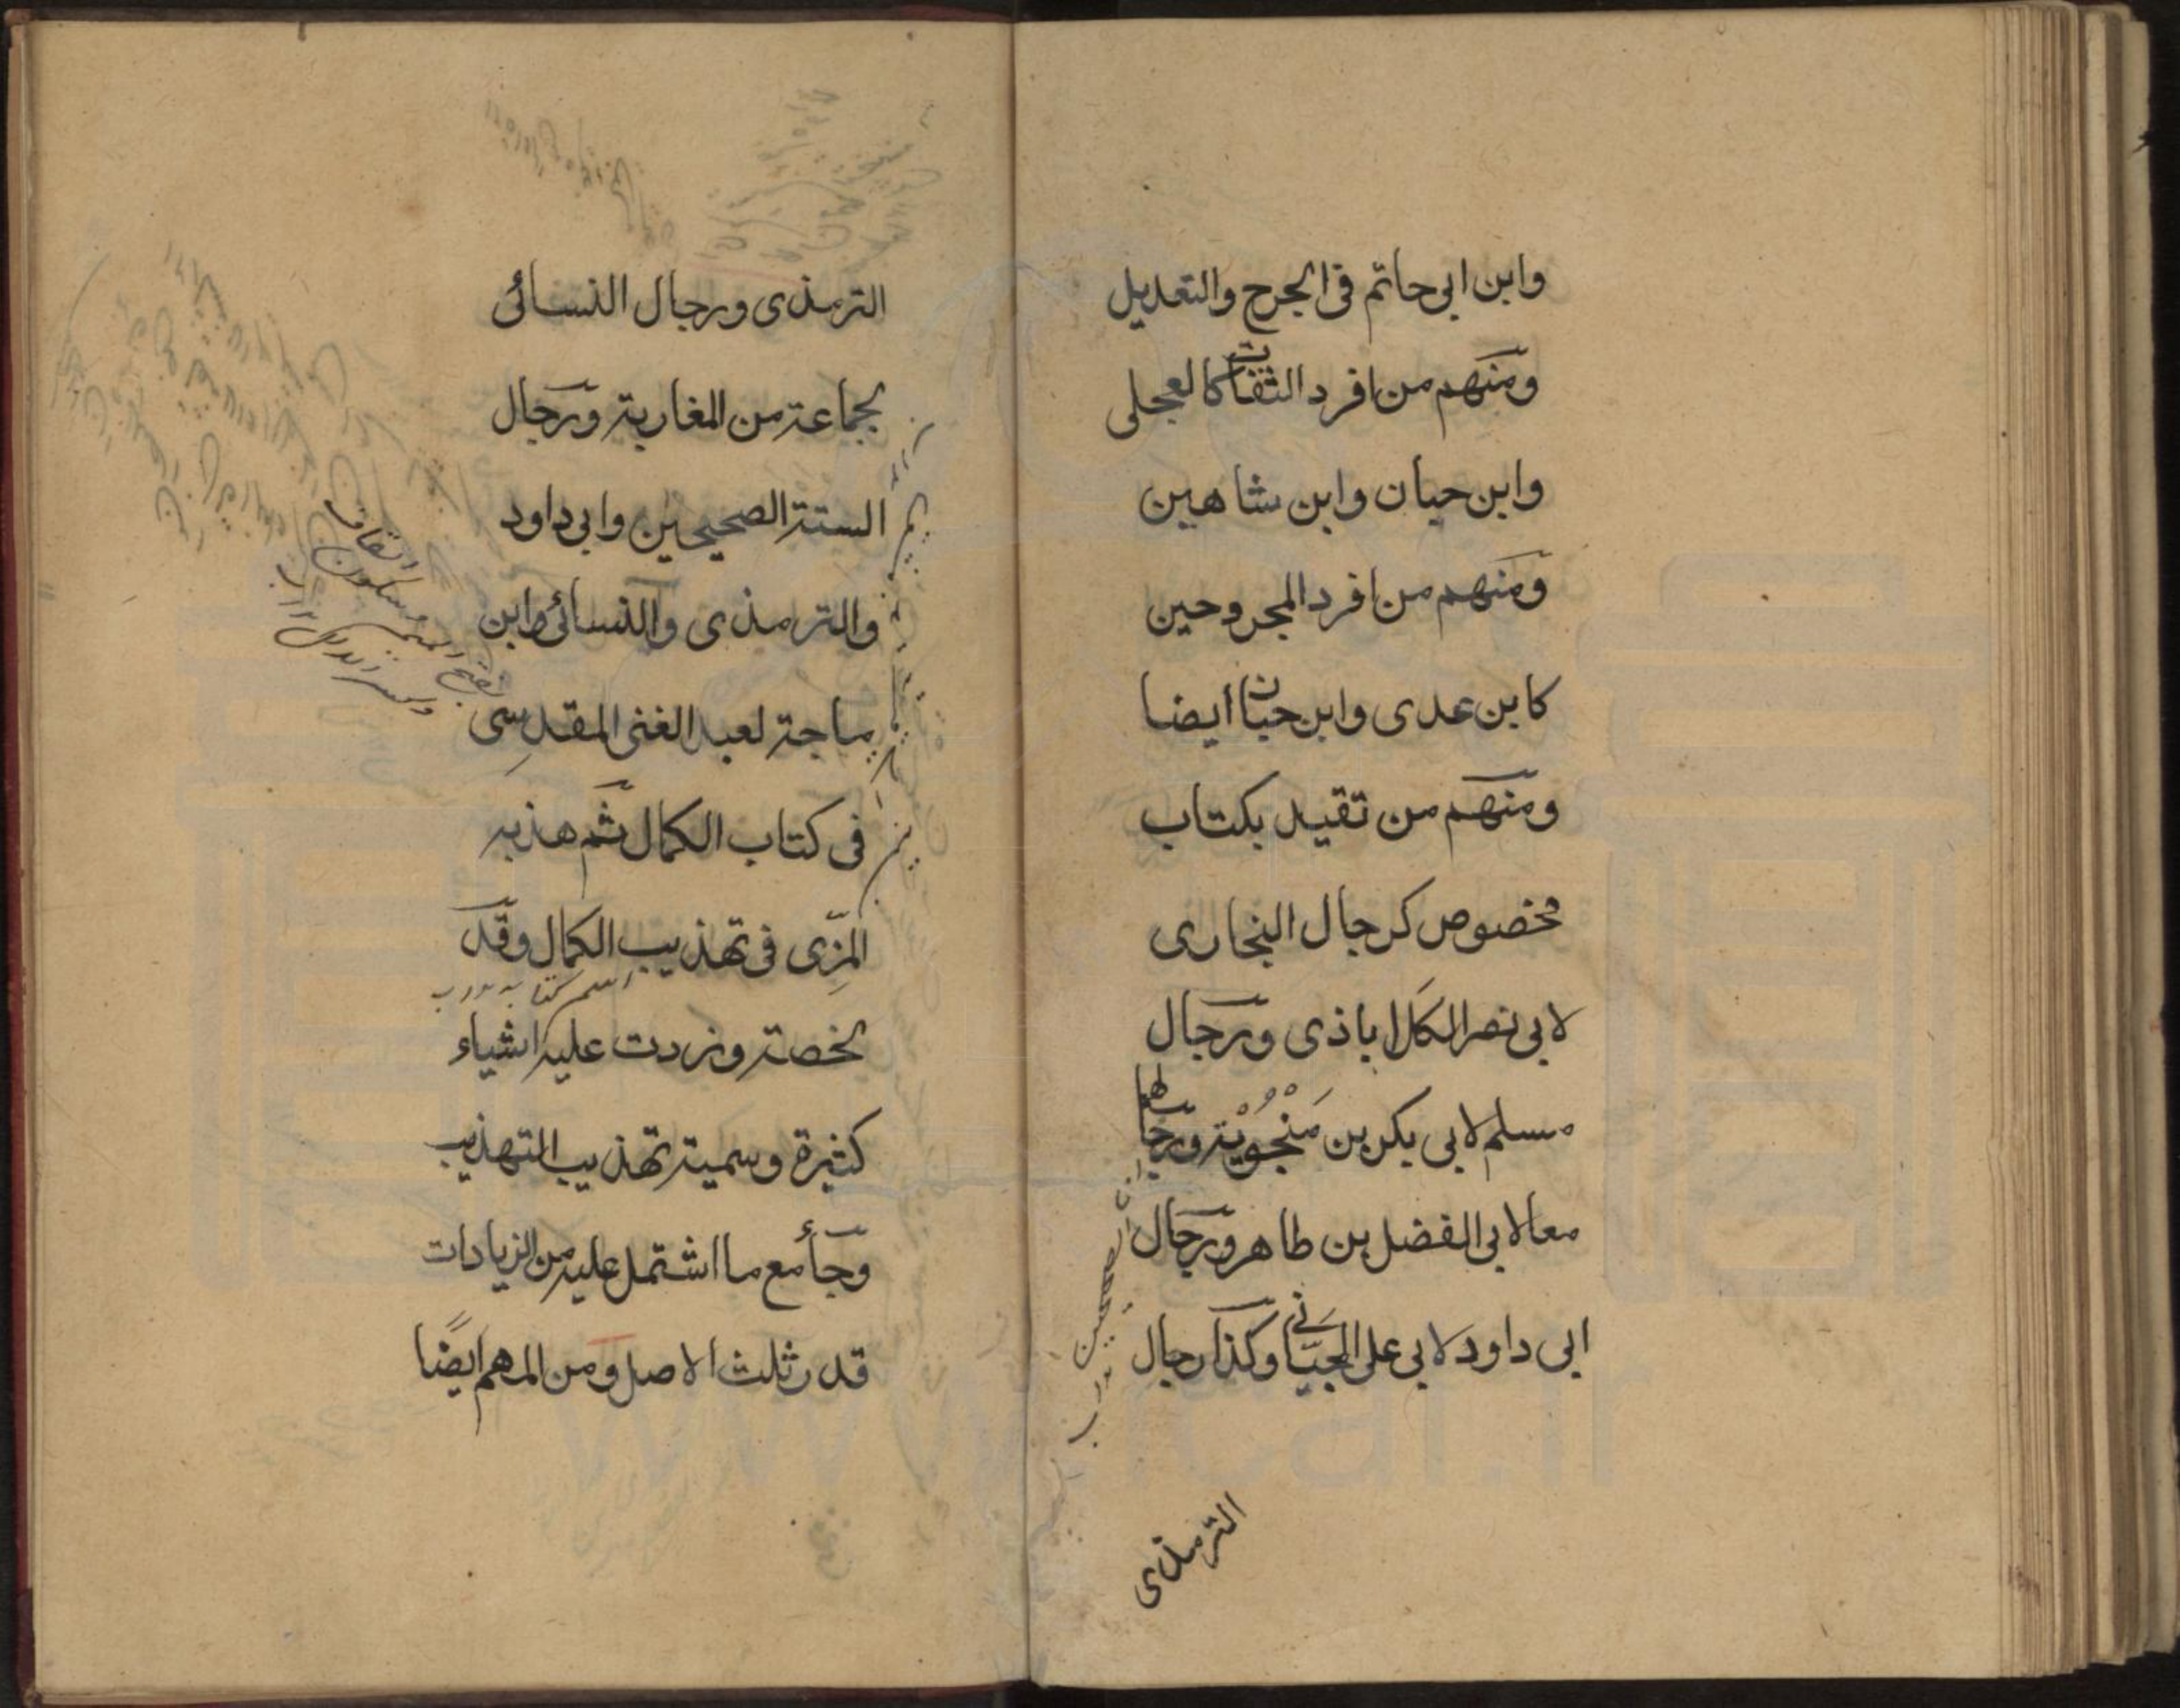 وابن ابی حاتم فی الجرح والتعدیل
ومنهم من افرد الثقات کالعجلی
وابن حبان وابن شاهین
ومنهم من افرد المجروحین
کابن عدی وابن حبان أیضا
ومنهم من تقید بکتاب
مخصوص کرجال البخاری
لابی نصر الکلاباذی ورجال
مسلم لابی بکر بن مَنْجُوْیَه ورجالهما
معا لابی الفضل بن طاهر ورجال
ابی داود لابی علی الجیّانی وکذا رجال
الترمذی
الترمذی ورجال النسائی
لجماعة من المغاربة ورجال
الستة الصحیحین وابی داود
والترمذی والنسائی وابن
ماجة لعبد الغنی المقدِسی
فی کتاب الکمال ثم هذبه
المِزّی فی تهذیب الکمال وقد
لخصته وزدت علیه اشیاء
کثیرة وسمیته تهذیب التهذیب
وجاء مع ما اشتمل علیه من الزیادات
قدر ثلث الاصل ومن المهم ایضًا
بفتح المیم وسکون القاف
وکسر الدال